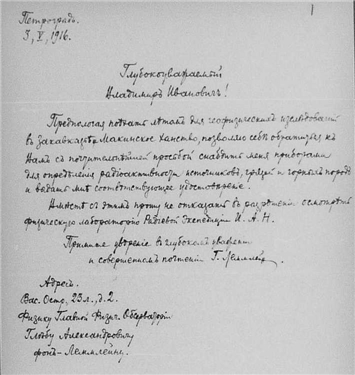 Петроградъ.
3, V, 1916.
1
Глубокоуважаемый
Владиміръ Ивановичъ!
Предполагая поѣхать лѣтомъ для геофизическихъ изслѣдованій
въ Закавказье Макинское Ханство, позволяю себѣ обратиться къ
Вамъ съ почтительнѣйшей просьбой снабдить меня приборами
для опредѣленія радіоактивности источниковъ, грязей и горныхъ породъ
и выдать мнѣ соответствующее удостовѣреніе.
Вмѣстѣ съ этимъ прошу не отказать въ разрѣшеніи осмотрѣть
физическую лабораторію Радіевой Экспедиціи И. А. Н.
Примите увѣреніе въ глубокомъ уваженіи
и совершенномъ почтеніи Г. Леммлейнъ
Адресъ:
Вас. Остр., 23 л., д. 2.
Физику Главной Физич. Обсерваторіи
Глѣбу Александровичу
фонъ-Леммлейну.